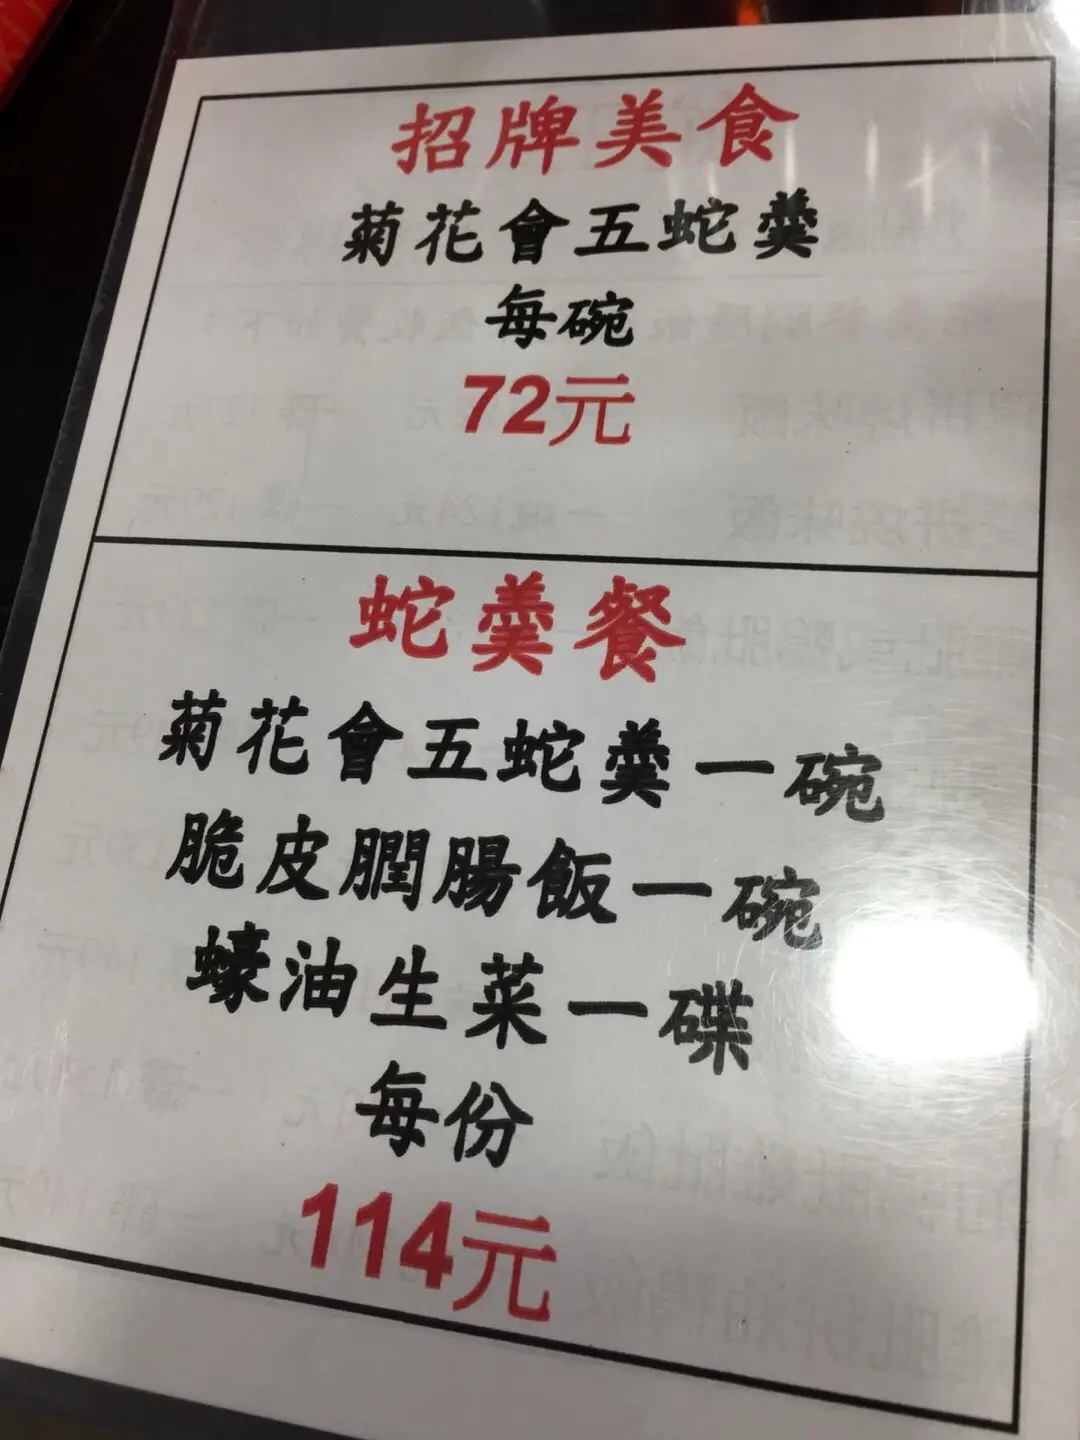 招牌美食
菊花會五蛇羹
每碗
72元
蛇羹餐
菊花會五蛇羹一碗
脆皮膶腸飯一碗
蠔油生菜一碟
每份
114元